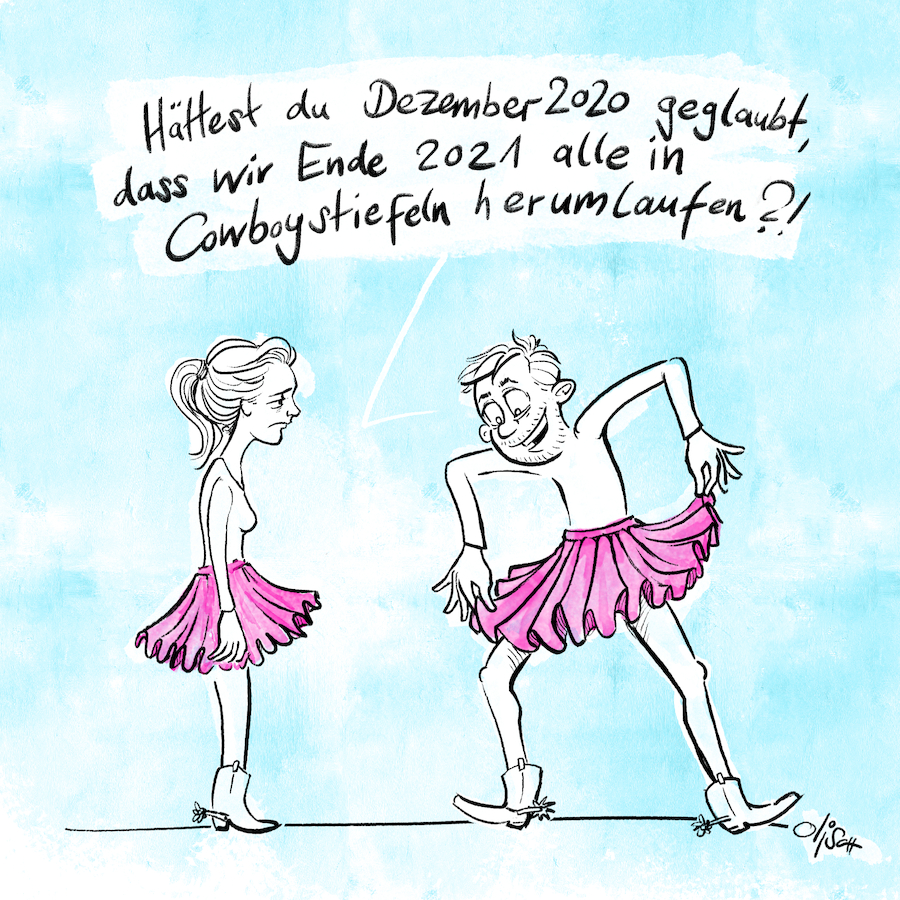 Hättest du Dezember 2020 geglaubt,
dass wir Ende 2021 alle in
Cowboystiefeln herumlaufen?!
OliSch